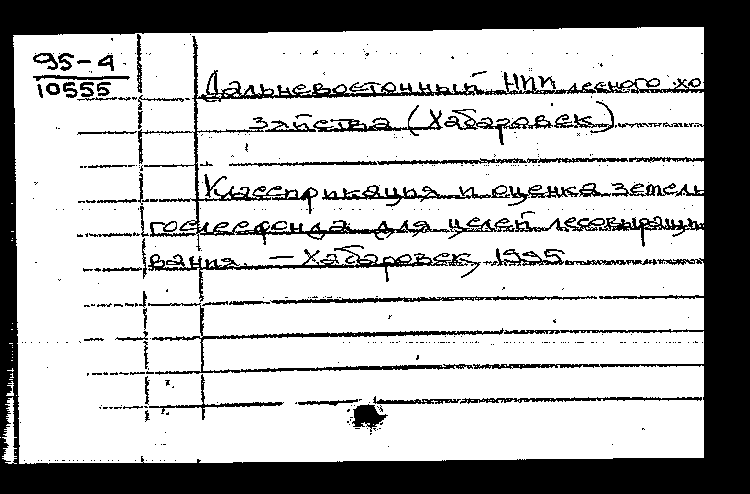 95-4
10555
Дальневосточный НИИ лесного хо
зяйства (Хабаровск)
Классификация и оценка земель
гослесфонда для целей лесовыращи
вания. — Хабаровск, 1995